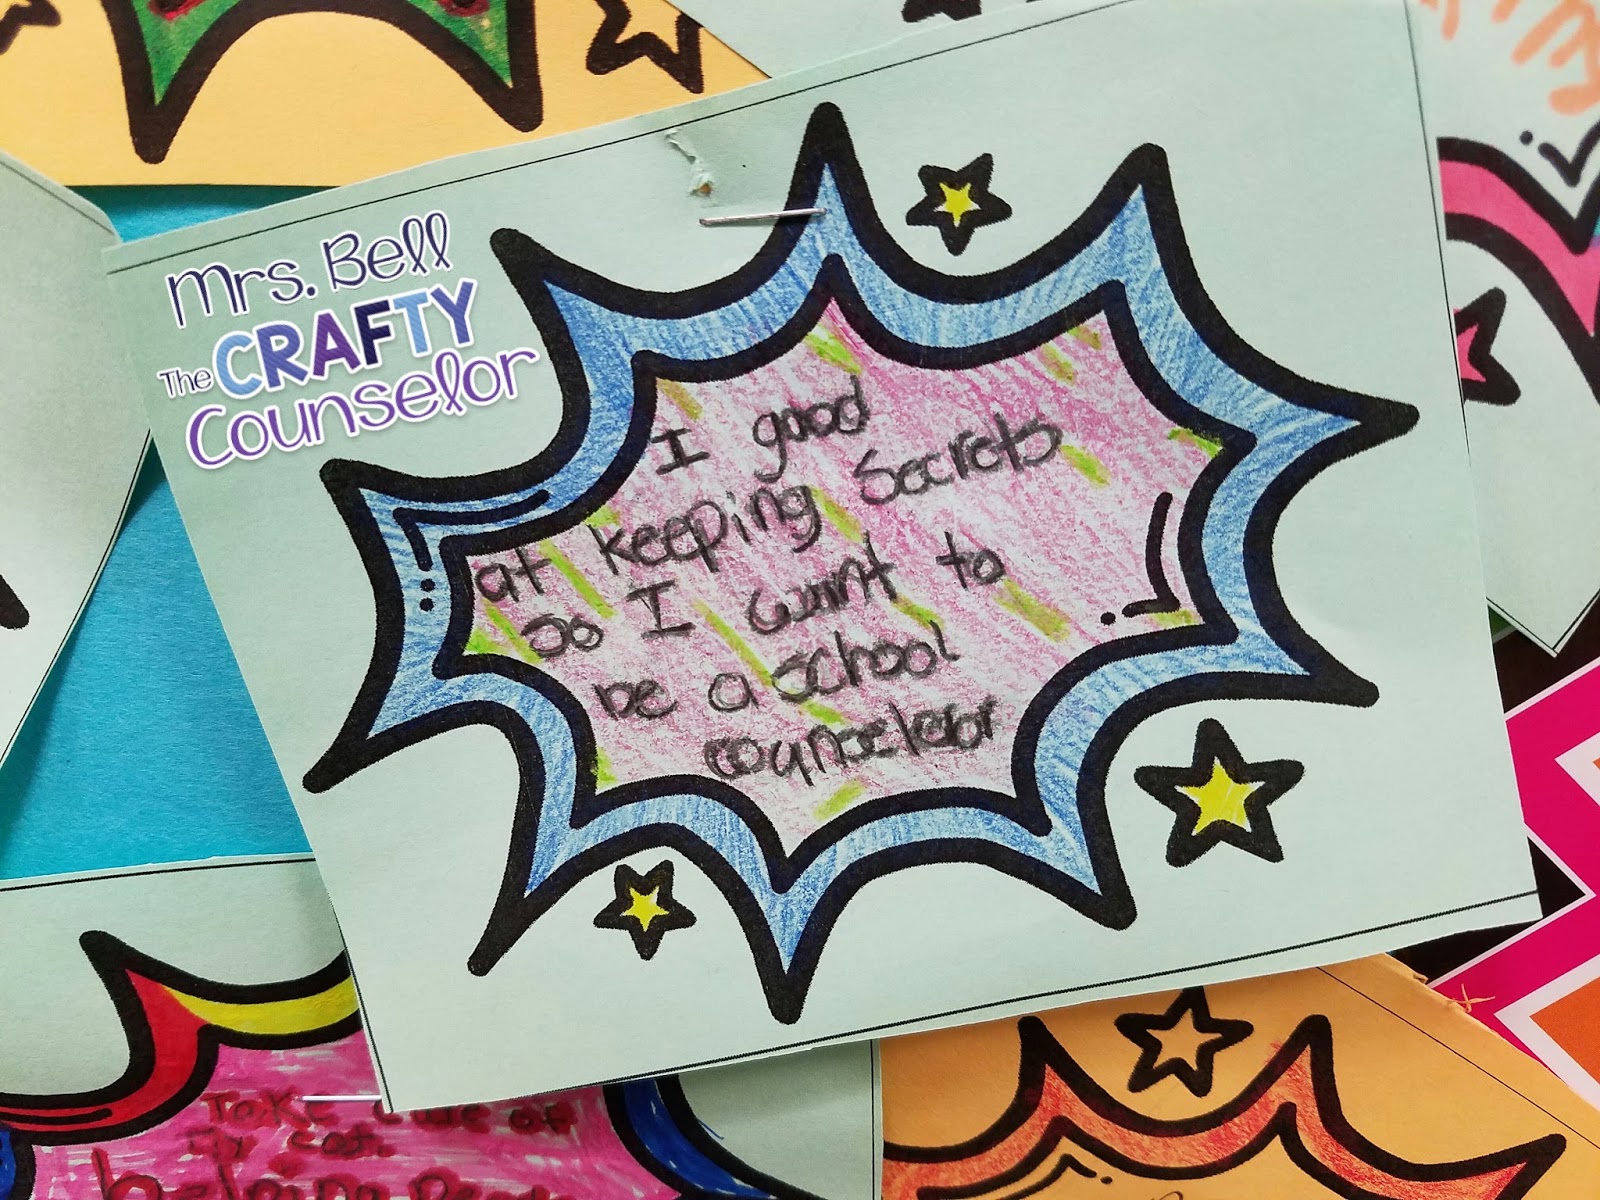 Mrs. Bell
The CRAFTY
Counselor
I good
at keeping Secrets
so I want to
be a school
counseleor
Take care of
my cat.
helping